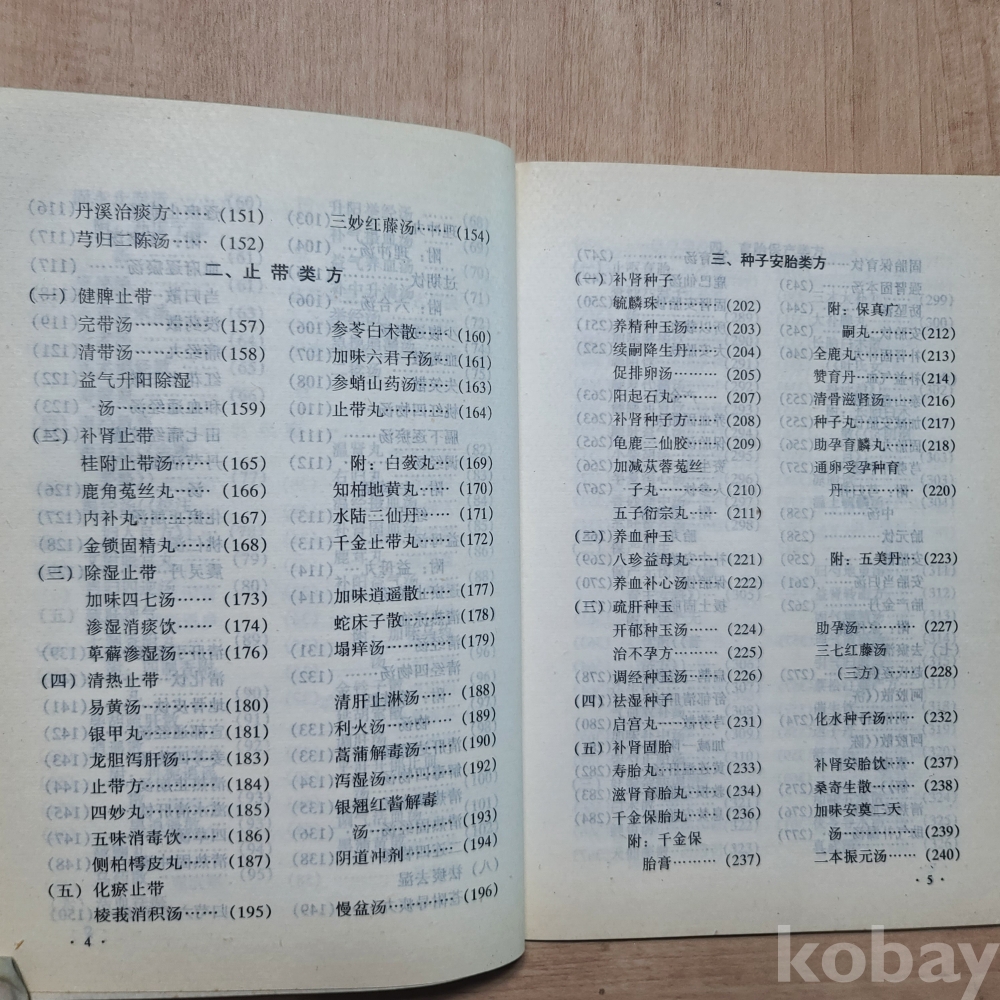 丹溪治痰方……(151)
芎归二陈汤……(152)
三妙红藤汤……(154)
二、止带类方
(一)健脾止带
完带汤……(157)
清带汤……(158)
益气升阳除湿
汤……(159)
参苓白术散……(160)
加味六君子汤…(161)
参蛸山药汤……(163)
止带丸……(164)
(二)补肾止带
桂附止带汤……(165)
鹿角菟丝丸……(166)
内补丸……(167)
金锁固精丸……(168)
附：白蔹丸…(169)
知柏地黄丸……(170)
水陆二仙丹……(171)
千金止带丸……(172)
(三)除湿止带
加味四七汤……(173)
渗湿消痰饮……(174)
萆薢渗湿汤……(176)
加味逍遥散……(177)
蛇床子散……(178)
塌痒汤……(179)
(四)清热止带
易黄汤……(180)
银甲丸……(181)
龙胆泻肝汤……(183)
止带方……(184)
四妙丸……(185)
五味消毒饮……(186)
侧柏樗皮丸……(187)
清肝止淋汤……(188)
利火汤……(189)
蒿蒲解毒汤……(190)
泻湿汤……(192)
银翘红酱解毒
汤……(193)
阴道冲剂……(194)
(五)化瘀止带
棱莪消积汤……(195)
慢盆汤……(196)
·4·
三、种子安胎类方
(一)补肾种子
毓麟珠……(202)
养精种玉汤……(203)
续嗣降生丹……(204)
促排卵汤……(205)
阳起石丸……(207)
补肾种子方……(208)
龟鹿二仙胶……(209)
加减苁蓉菟丝
子丸……(210)
五子衍宗丸……(211)
附：保真广
嗣丸……(212)
全鹿丸……(213)
赞育丹……(214)
清骨滋肾汤……(216)
种子丸……(217)
助孕育麟丸……(218)
通卵受孕种育
丹……(220)
(二)养血种玉
八珍益母丸……(221)
养血补心汤……(222)
附：五美丹…(223)
(三)疏肝种玉
开郁种玉汤……(224)
治不孕方……(225)
调经种玉汤……(226)
助孕汤……(227)
三七红藤汤
(三方)……(228)
(四)祛湿种子
启宫丸……(231)
化水种子汤……(232)
(五)补肾固胎
寿胎丸……(233)
滋肾育胎丸……(234)
千金保胎丸……(236)
附：千金保
胎膏……(237)
补肾安胎饮……(237)
桑寄生散……(238)
加味安奠二天
汤……(239)
二本振元汤……(240)
·5·
kobay